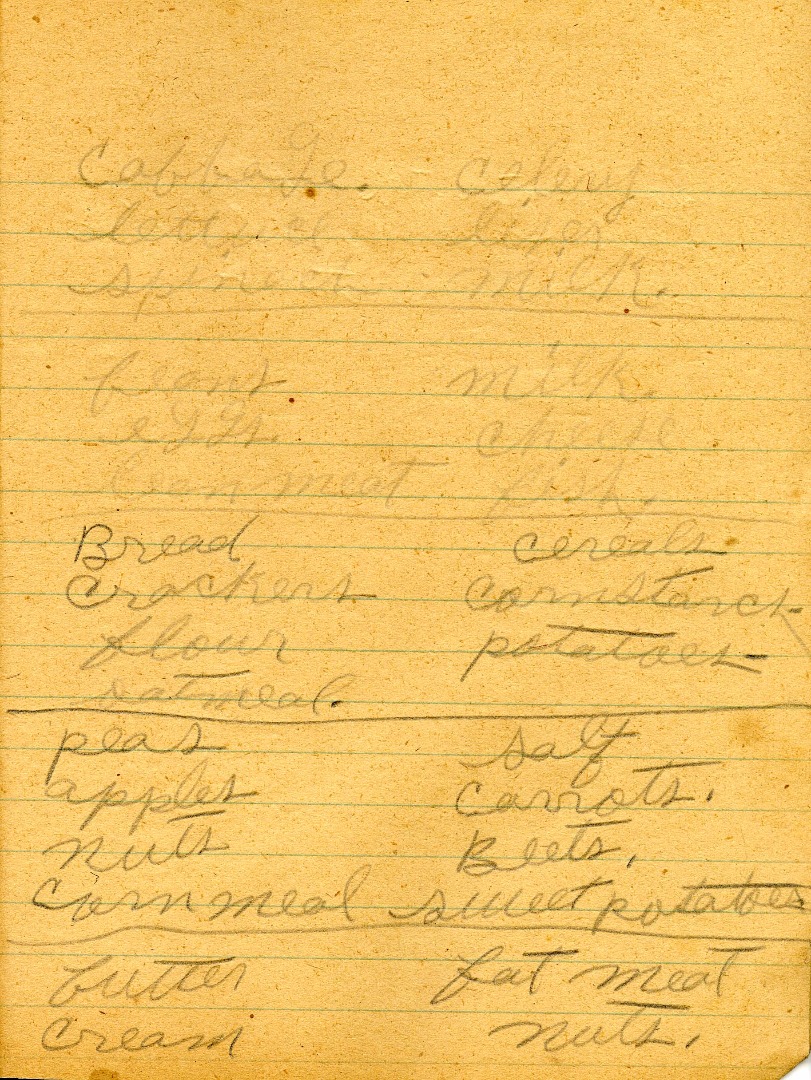 cabbage. celery
lettuce liver
spinach milk.
beans milk.
eggs. cheese
lean meat fish.
Bread cereals
crackers cornstarch
flour potatoes
oatmeal.
peas salt
apples carrots.
nuts Beets.
cornmeal sweet potatoes
butter fat meat
cream nuts.